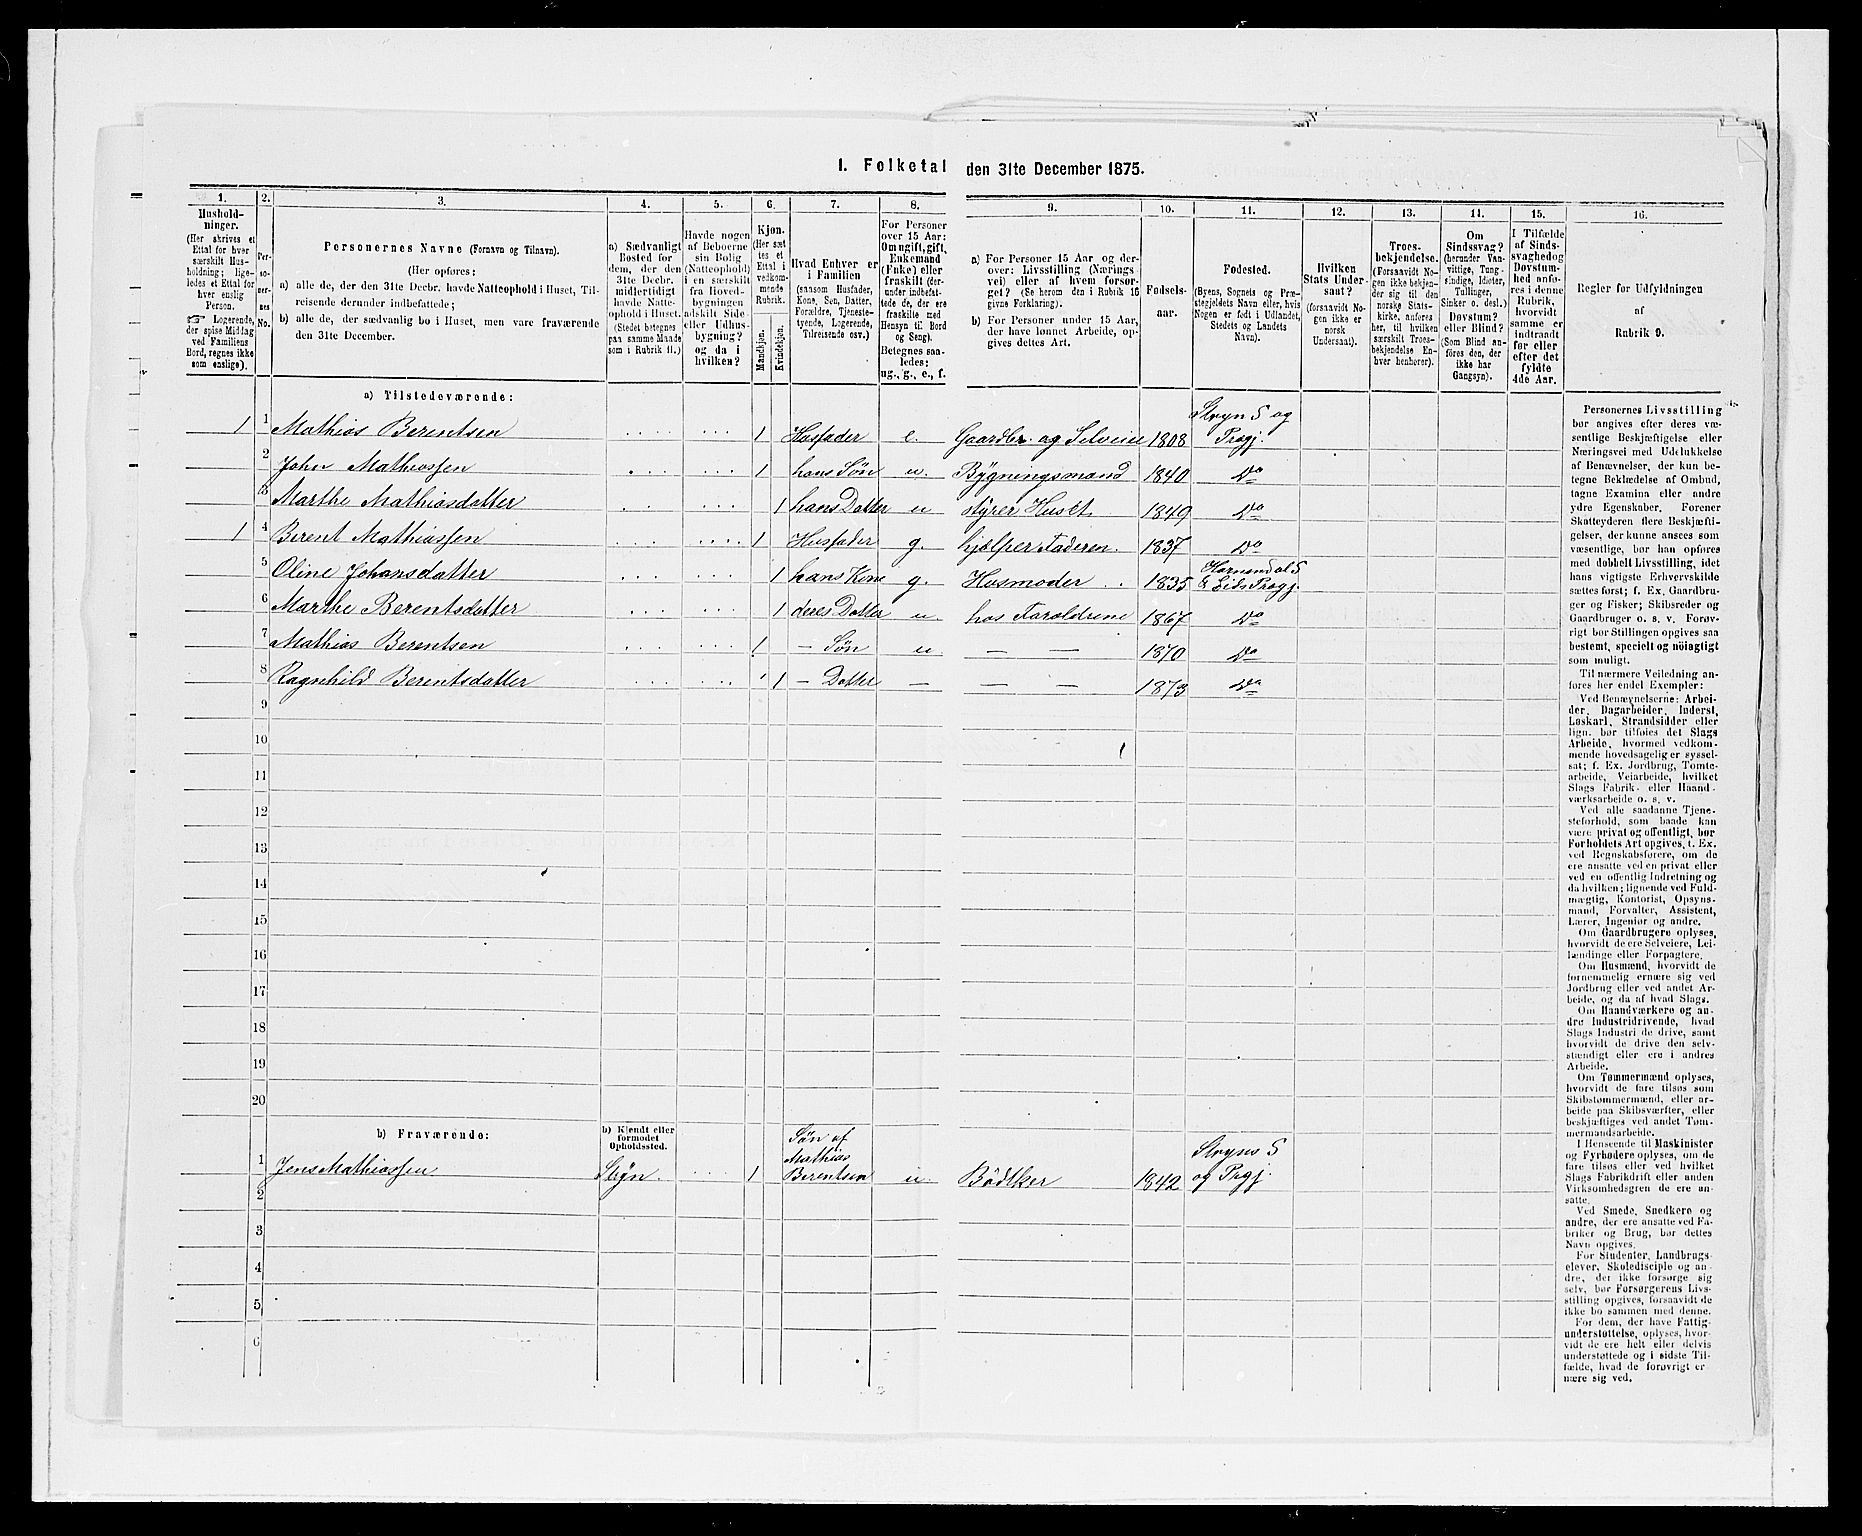 I. Folketal den 31te December 1875.
1. 2. 3. 4. 5. 6. 7. 8. 9. 10. 11. 12. 13. 14. 15. 16.
Hushold-
ninger.
(Her skrives et
Ettal for hver
særskilt Hus-
holdning; lige-
ledes et Ettal for
hver enslig
Person.
☞ Logerende,
der spise Middag
ved Familiens
Bord, regnes ikke
som enslige).
Per-
so-
ner-
nes
No.
Personernes Navne (Fornavn og Tilnavn).
(Her opføres:
a) alle de, der den 31te Decbr. havde Natteophold i Huset, Til-
reisende derunder indbefattede;
b) alle de, der sædvanlig bo i Huset, men vare fraværende
den 31te December.
a) Sædvanligt
Bosted for
dem, der den
31te Decbr.
midlertidigt
havde Natte-
ophold i Huset.
(Stedet betegnes
paa samme Maade
som i Rubrik 11.)
Havde nogen
af Beboerne
sin Bolig
(Natteophold)
i en særskilt
fra Hoved-
bygningen
adskilt Side-
eller Udhus-
bygning?
og da i
hvilken?
Kjøn.
(Her sæt-
tes et
Ettal i
vedkom-
mende
Rubrik.
Mandkjøn.
Kvindekjøn.
Hvad Enhver er
i Familien
(saasom Husfader,
Kone, Søn, Datter,
Forældre, Tjeneste-
tyende, Logerende,
Tilreisende osv.)
For Personer
over 15 Aar:
Om ugift, gift,
Enkemand
(Enke) eller
fraskilt (der-
under indbefat-
tede de, der ere
fraskilte med
Hensyn til Bord
og Seng).
Betegnes saa-
ledes:
ug., g., e., f.
a) For Personer 15 Aar og der-
over: Livsstilling (Nærings-
vei) eller af hvem forsør-
get? (Se herom den i Rubrik 16
givne Forklaring).
b) For Personer under 15 Aar,
der have lønnet Arbeide, op-
gives dettes Art.
Fødsels-
aar.
Fødested.
(Byens, Sognets og Præ-
stegjeldets Navn eller, hvis
Nogen er født i Udlandet,
Stedets og Landets
Navn).
Hvilken
Stats Under-
saat?
(forsaavidt No-
gen ikke er
norsk
Undersaat).
Troes-
bekjendelse.
(Forsaavidt No-
gen ikke bekjen-
der sig til den
norske Stats-
kirke, anføres
her, til hvilken
særskilt Troes-
bekjendelse En-
hver henhører).
Om
Sindssvag?
(herunder Van-
vittige, Tung-
sindige, Idioter,
Tullinger,
Sinker o. desl.)
Døvstum?
eller Blind?
(Som Blind an-
føres den, der
ikke har
Gangsyn).
I Tilfælde
af Sinds-
svaghed og
Døvstum-
hed anfø-
res i denne
Rubrik,
hvorvidt
samme er
indtraadt
før eller
efter det
fyldte
4de Aar.
Regler for Udfyldningen
af
Rubrik 9.
a) Tilstedeværende:
Stryn S og
1 1 Mathias Berentsen 1 Husfader e. Gaardbr. og Selveier 1808 Prgj.
2 John Mathiassen 1 hans Søn u. Bygningsmand 1840 Do
3 Marthe Mathiasdatter 1 hans Datter u styrer Huset 1849 Do
1 4 Berent Mathiassen 1 Husfader g. hjælper Faderen. 1837 Do
Hornindal S
5 Oline Johansdatter 1 hans Kone g. Husmoder 1835 & Eids Prgj.
6 Marthe Berentsdatter 1 deres Datter u. hos Forældrene 1867 Do
7 Mathias Berentsen 1 – Søn u. — — 1870 Do
8 Ragnhild Berentsdatter 1 – Datter — — — 1873 Do
9
10
11
12
13
14
15
16
17
18
19
20
b) Fraværende:
b) Kjendt eller
formodet
Opholdssted.
Søn af
Mathias
Stryns S
1 Jens Mathiassen Stryn. 1 Berentsen u. Bödtker 1842 og Prgj.
2
3
4
5
6
Personernes Livsstilling
bør angives efter deres væ-
sentlige Beskjæftigelse eller
Næringsvei med Udelukkelse
af Benævnelser, der kun be-
tegne Beklædelse af Ombud,
tagne Examina eller andre
ydre Egenskaber. Forener
Skatteyderen flere Beskjæfti-
gelser, der kunne ansees som
væsentlige, bør han opføres
med dobbelt Livsstilling, idet
hans vigtigste Erhvervskilde
sættes først; f. Ex. Gaardbru-
ger og Fisker; Skibsreder og
Gaardbruger o. s. v. Forøv-
rigt bør Stillingen opgives saa
bestemt, specielt og nöiagtigt
som muligt.
Til nærmere Veiledning an-
føres her endel Exempler:
Ved Benævnelserne: Arbei-
der, Dagarbeider, Inderst,
Løskarl, Strandsidder eller
lign. bør tilføies det Slags
Arbeide, hvormed vedkom-
mende hovedsagelig er syssel-
sat; f. Ex. Jordbrug, Tomte-
arbeide, Veiarbeide, hvilket
Slags Fabrik- eller Haand-
værksarbeide o. s. v.
Ved alle saadanne Tjene-
steforhold, som baade kan
være privat og offentligt, bør
Forholdets Art opgives, f. Ex.
ved Regnskabsførere, om de
ere ansatte ved en privat eller
ved en offentlig Indretning og
da hvilken; lignende ved Fuld-
mægtig, Kontorist, Opsyns-
mand, Forvalter, Assistent,
Lærer, Ingeniør og andre.
Om Gaardbrugere oplyses,
hvorvidt de ere Selveiere, Lei-
lændinge eller Forpagtere.
Om Husmænd, hvorvidt de
fornemmelig ernære sig ved
Jordbrug eller ved andet Ar-
beide, og da af hvad Slags.
Om Haandværkere og an-
dre Industridrivende, hvad
Slags Industri de drive, samt
hvorvidt de drive den selv-
stændigt eller ere i andres
Arbeide.
Om Tømmermænd oplyses,
hvorvidt de fare tilsøs som
Skibstømmermænd, eller ar-
beide paa Skibsværfter, eller
beskjæftiges ved andet Tøm-
mermandsarbeide.
I Henseende til Maskinister
og Fyrbødere oplyses, om de
fare tilsøs eller ved hvilket
Slags Fabrikdrift eller anden
Virksomhedsgren de ere an-
satte.
Ved Smede, Snedkere og
andre, der ere ansatte ved Fa-
briker og Brug, bør dettes
Navn opgives.
For Studenter, Landbrugs-
elever, Skoledisciple og an-
dre, der ikke forsørge sig
selv, bør Forsørgerens Livs-
stilling opgives, forsaavidt de
ikke bo sammen med denne.
For dem, der have Fattig-
understøttelse, oplyses, hvor-
vidt de ere helt eller delvis
understøttede og i sidste Til-
fælde, hvad de forøvrigt er
nære sig ved.